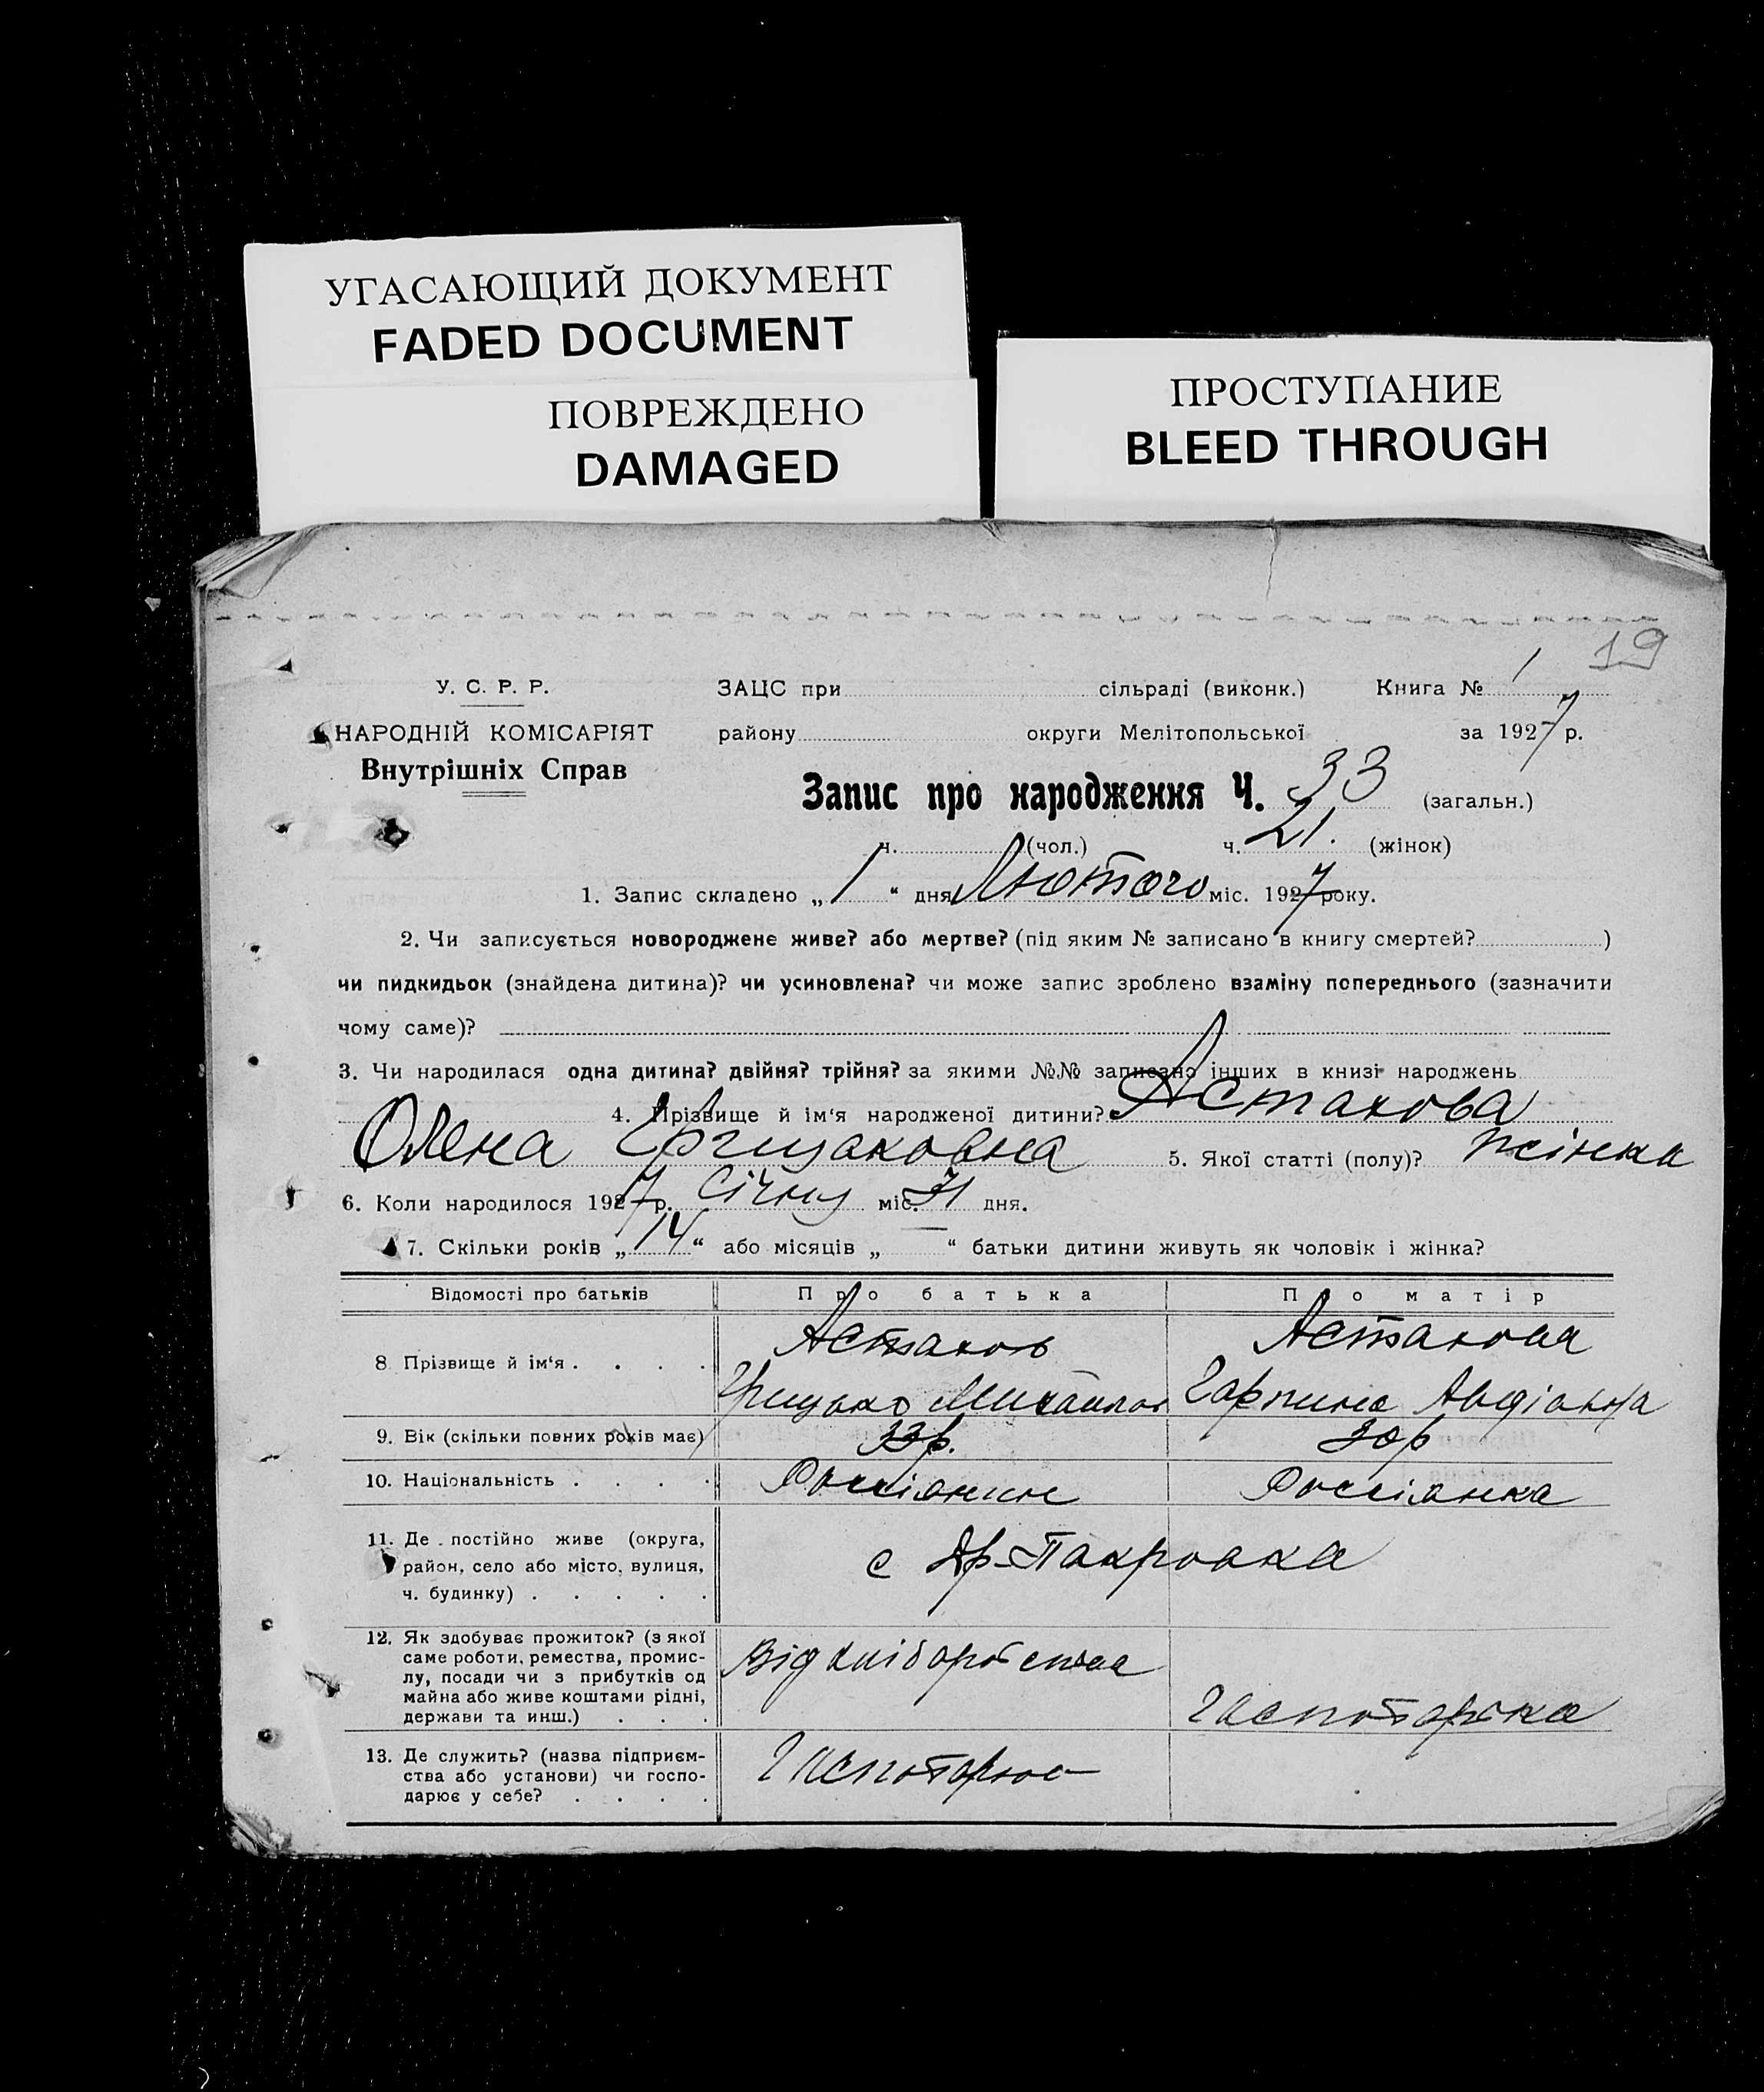 УГАСАЮЩИЙ ДОКУМЕНТ
FADED DOCUMENT
ПОВРЕЖДЕНО
DAMAGED
ПРОСТУПАНИЕ
BLEED THROUGH
19
У. С. Р. Р. ЗАЦС при сільраді (виконк.) Книга № 1
НАРОДНІЙ КОМІСАРІЯТ району округи Мелітопольської за 1927 р.
Внутрішніх Справ
Запис про народження Ч. 33 (загальн.)
ч. (чол.) ч. 21. (жінок)
1. Запис складено „ 1 “ дня Лютого міс. 1927 року.
2. Чи записується новороджене живе? або мертве? (під яким № записано в книгу смертей? )
чи пидкидьок (знайдена дитина)? чи усиновлена? чи може запис зроблено взаміну попереднього (зазначити
чому саме)?
3. Чи народилася одна дитина? двійня? трійня? за якими №№ записано інших в книзі народжень
4. Прізвище й ім‘я народженої дитини? Астахова
Олена Грицаковна 5. Якої статті (полу)? жінка
6. Коли народилося 1927 р. Січну міс. 31 дня.
7. Скільки років „ 14 “ або місяців „ — “ батьки дитини живуть як чоловік і жінка?
Відомості про батьків Про батька Про матір
8. Прізвище й ім‘я . . . . Астахов Астахова
Грицько Михайлов Гарпина Авдіевна
9. Вік (скільки повних років має) 33р. 30р
10. Національність . . . . Россіянин Россіянка
11. Де постійно живе (округа,
район, село або місто, вулиця,
ч. будинку) . . . . .
с Пакровка
12. Як здобуває прожиток? (з якої
саме роботи, ремества, промис-
лу, посади чи з прибутків од
майна або живе коштами рідні,
держави та инш.) . . .
Від хліборобства
13. Де служить? (назва підприєм-
ства або установи) чи госпо-
дарює у себе? . . . .